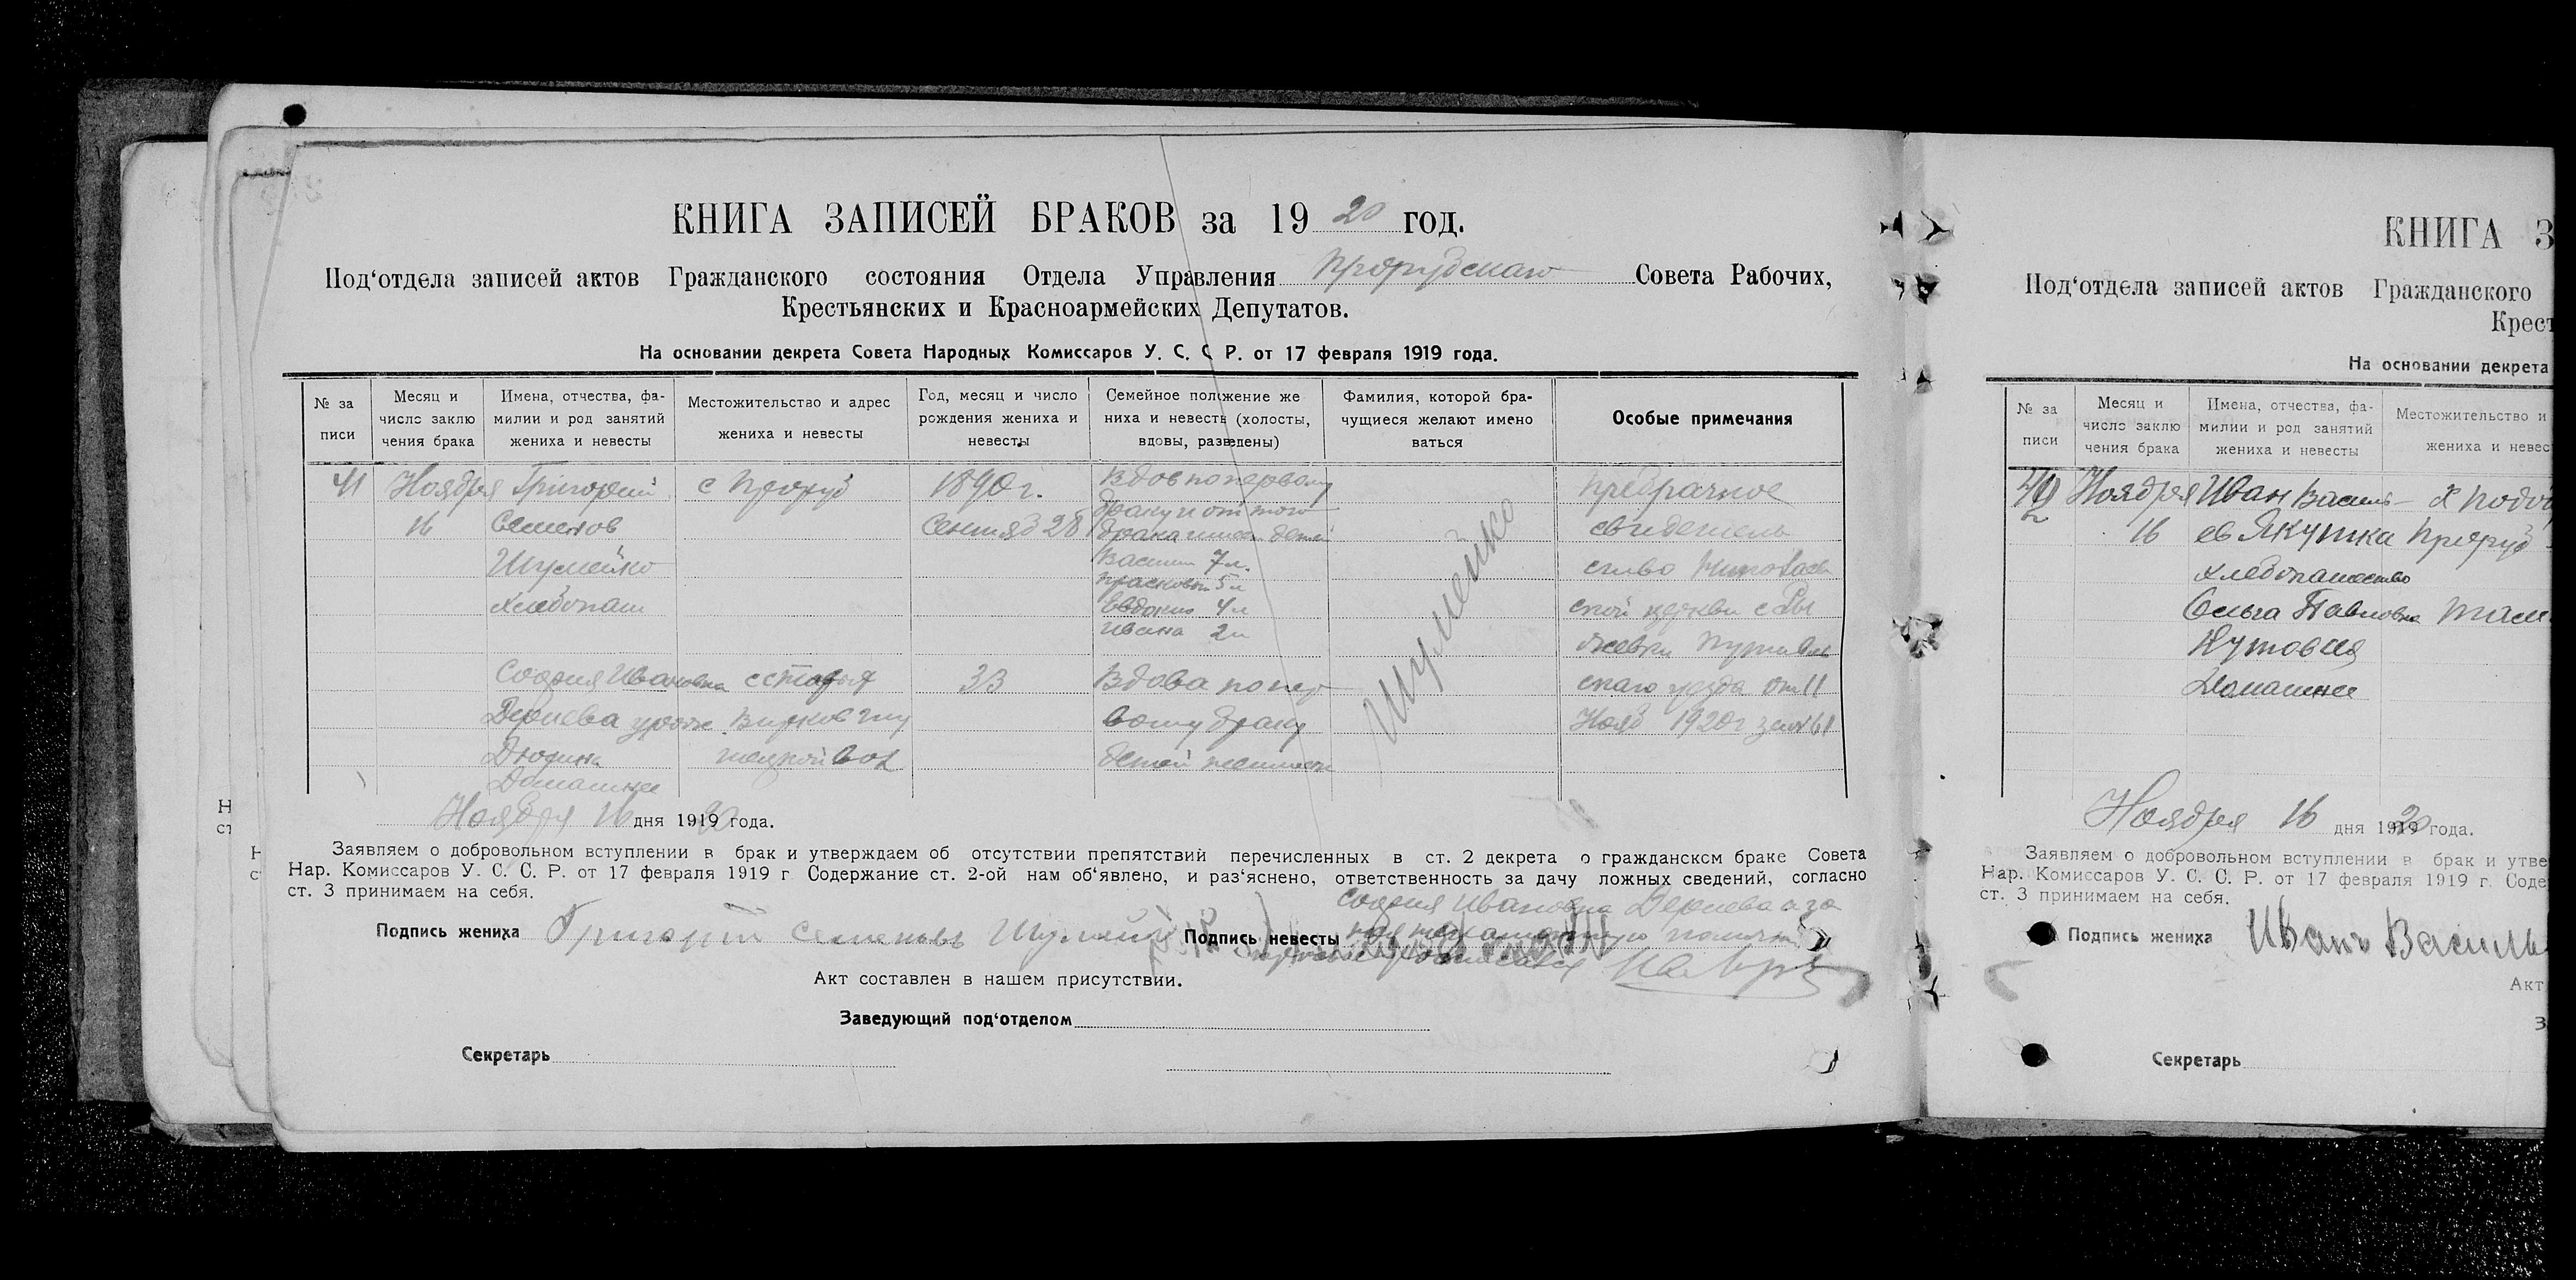 КНИГА ЗАПИСЕЙ БРАКОВ за 1920 год.
Под‘отдела записей актов Гражданского состояния Отдела Управления Прорубскаго Совета Рабочих,
Крестьянских и Красноармейских Депутатов.
На основании декрета Совета Народных Комиссаров У. С. С. Р. от 17 февраля 1919 года.
№ за писи
Месяц и число заклю чения брака
Имена, отчества, фа- милии и род занятий жениха и невесты
Местожительство и адрес жениха и невесты
Год, месяц и число рождения жениха и невесты
Семейное положение же ниха и невесты (холосты, вдовы, разведены)
Фамилия, которой бра- чущиеся желают имено ваться
Особые примечания
41
Ноября
16
Григорий
Семенов
Шумейко
хлебопаш
с Проруб
1890 г.
Сентяб 28
Вдов по первому
браку и от того
брака имеет детей
Василий 7 л.
Прасковья 5 л
Евдокию 4 л
Ивана 2 л
Шумейко
предбрачное
свидетель
ство
ской церкви с Ры
жевки Путивль
скаго уезда от 11
Нояб 1920 г за № 61
София Ивановна
Домашнее
с
33
Вдова по пер
вому браку
детей не имеет
Ноября 16 дня 1920 года.
Заявляем о добровольном вступлении в брак и утверждаем об отсутствии препятствий перечисленных в ст. 2 декрета о гражданском браке Совета
Нар. Комиссаров У. С. С. Р. от 17 февраля 1919 г Содержание ст. 2-ой нам об‘явлено, и раз‘яснено, ответственность за дачу ложных сведений, согласно
ст. 3 принимаем на себя.
София Ивановна
Подпись жениха Григорий Семеновъ Шумейко Подпись невесты
Акт составлен в нашем присутствии.
Заведующий под‘отделом
Секретарь
КНИГА З
Под‘отдела записей актов Гражданского
Крест
На основании декрета
№ за писи
Месяц и число заклю чения брака
Имена, отчества, фа- милии и род занятий жениха и невесты
Местожительство и
жениха и невес
42
Ноября
16
Иван Василь-
ев Якушка
хлебопашество
Ольга Павловна
Кутовая
Домашнее
Проруб
Ноября 16 дня 1920 года.
Заявляем о добровольном вступлении в брак и утве
Нар. Комиссаров У. С. С. Р. от 17 февраля 1919 г. Соде
ст. 3 принимаем на себя.
Подпись жениха Иванъ Василь
Акт
З
Секретарь